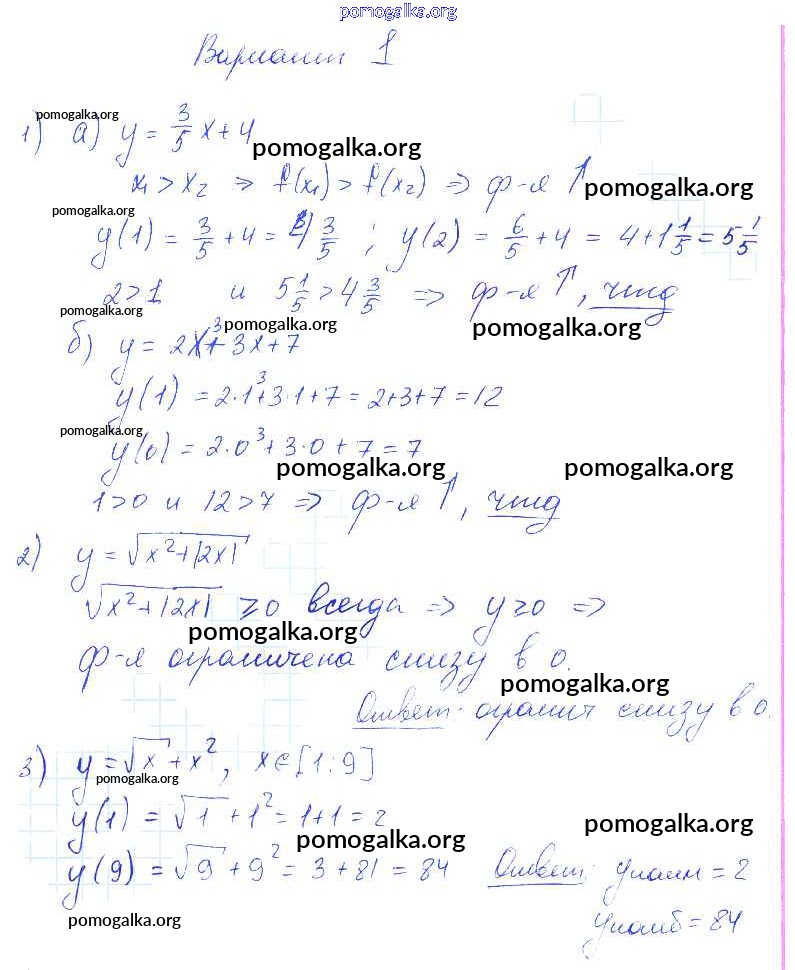 pomogalka.org
Вариант 1
pomogalka.org
1) а) y = 3/5 x + 4
pomogalka.org
x₁ > x₂ ⇒ f(x₁) > f(x₂) ⇒ ф-я ↑
pomogalka.org
pomogalka.org
y(1) = 3/5 + 4 = 4 3/5 ; y(2) = 6/5 + 4 = 4 + 1 1/5 = 5 1/5
2 > 1 и 5 1/5 > 4 3/5 ⇒ ф-я ↑, чтд
pomogalka.org
pomogalka.org
pomogalka.org
б) y = 2x³ + 3x + 7
y(1) = 2·1³ + 3·1 + 7 = 2+3+7 = 12
pomogalka.org
y(0) = 2·0³ + 3·0 + 7 = 7
pomogalka.org
pomogalka.org
1 > 0 и 12 > 7 ⇒ ф-я ↑, чтд
2) y = √(x² + |2x|)
√(x² + |2x|) ⩾ 0 всегда ⇒ y ⩾ 0 ⇒
pomogalka.org
ф-я ограничена снизу в 0.
pomogalka.org
Ответ: огранич снизу в 0.
3) y = √x + x², x ∈ [1:9]
pomogalka.org
y(1) = √1 + 1² = 1+1 = 2
pomogalka.org
pomogalka.org
y(9) = √9 + 9² = 3 + 81 = 84 Ответ: yнаим = 2
yнаиб = 84
pomogalka.org